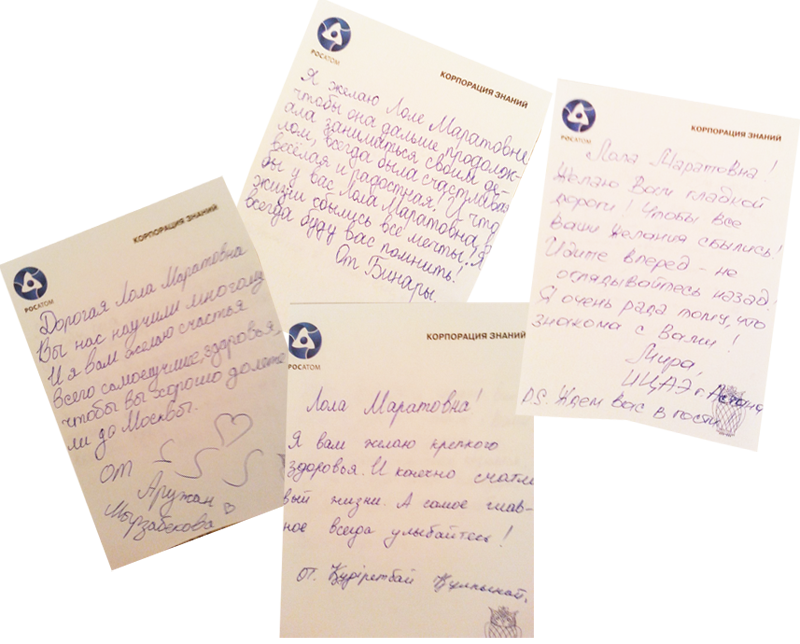 РОСАТОМ
КОРПОРАЦИЯ ЗНАНИЙ
Я желаю Лоле Маратовне
чтобы она дальше продолж-
ала заниматься своим де-
лом, всегда была счастливая
весёлая и радостная! И что
бы у вас Лола Маратовна, в
жизни сбылись все мечты! Я
всегда буду вас помнить!
От Бинары.
РОСАТОМ
КОРПОРАЦИЯ ЗНАНИЙ
Лола Маратовна!
Желаю Вам гладкой
дороги! Чтобы все
Ваши желания сбылись!
Идите вперед - не
оглядывайтесь назад!
Я очень рада тому, что
знакома с Вами!
Мира,
ИЦАЭ г. Астана
P.S. Ждем Вас в гости
РОСАТОМ
КОРПОРАЦИЯ ЗНАНИЙ
Дорогая Лола Маратовна
Вы нас научили многому
И я вам желаю счастья
всего самоелучшие, здоровья,
чтобы вы хорошо долете
ли до Москвы.
от
Аружан
Мырзабекова
РОСАТОМ
КОРПОРАЦИЯ ЗНАНИЙ
Лола Маратовна!
Я вам желаю крепкого
здоровья. И конечно счатли
вый жизни. А самое глав-
ное всегда улыбайтесь!
от. Құдіретбай